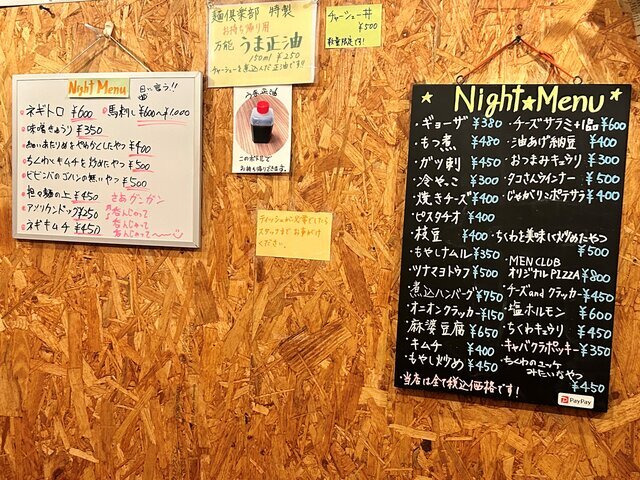 Night Menu
ネギトロ ¥600
馬刺し ¥600〜¥1,000
味噌きゅうり ¥350
¥400
ちくわとキムチを炒めたやつ ¥500
ビビンバのゴハンの無いやつ ¥500
担々麺の上 ¥450
アメリカンドッグ ¥250
ネギキムチ ¥450
さあ ガンガン
呑んじゃって
呑んじゃって
呑んじゃって〜
麺倶楽部 特製
お持ち帰り用
万能 うま正油
150ml ¥250
チャーシューを煮込んだ正油です!!
チャーシュー丼
¥500
数量限定です!
うま正油
このボトルで
お持ち帰りできます。
ティッシュが必要でしたら
スタッフまでお声がけ
ください。
Night★Menu
・ギョーザ ¥380
・もつ煮 ¥480
・ガツ刺 ¥450
・冷やっこ ¥300
・焼きチーズ ¥400
・ピスタチオ ¥400
・枝豆 ¥400
・もやしナムル ¥350
・ツナマヨトウフ ¥500
・煮込ハンバーグ ¥750
・オニオンクラッカー ¥150
・麻婆豆腐 ¥650
・キムチ ¥400
・もやし炒め ¥450
・チーズサラミ+1品 ¥600
・油あげ納豆 ¥400
・おつまみキュウリ ¥300
・タコさんウインナー ¥500
・じゃがりこポテサラ ¥400
・ちくわを美味しく炒めたやつ ¥500
・MEN CLUB
オリジナルPIZZA ¥800
・チーズandクラッカー ¥450
・塩ホルモン ¥600
・ちくわキュウリ ¥450
・キャバクラポッキー ¥350
・ちくわのユッケ
みたいなやつ ¥450
・当店は全て税込価格です!
PayPay